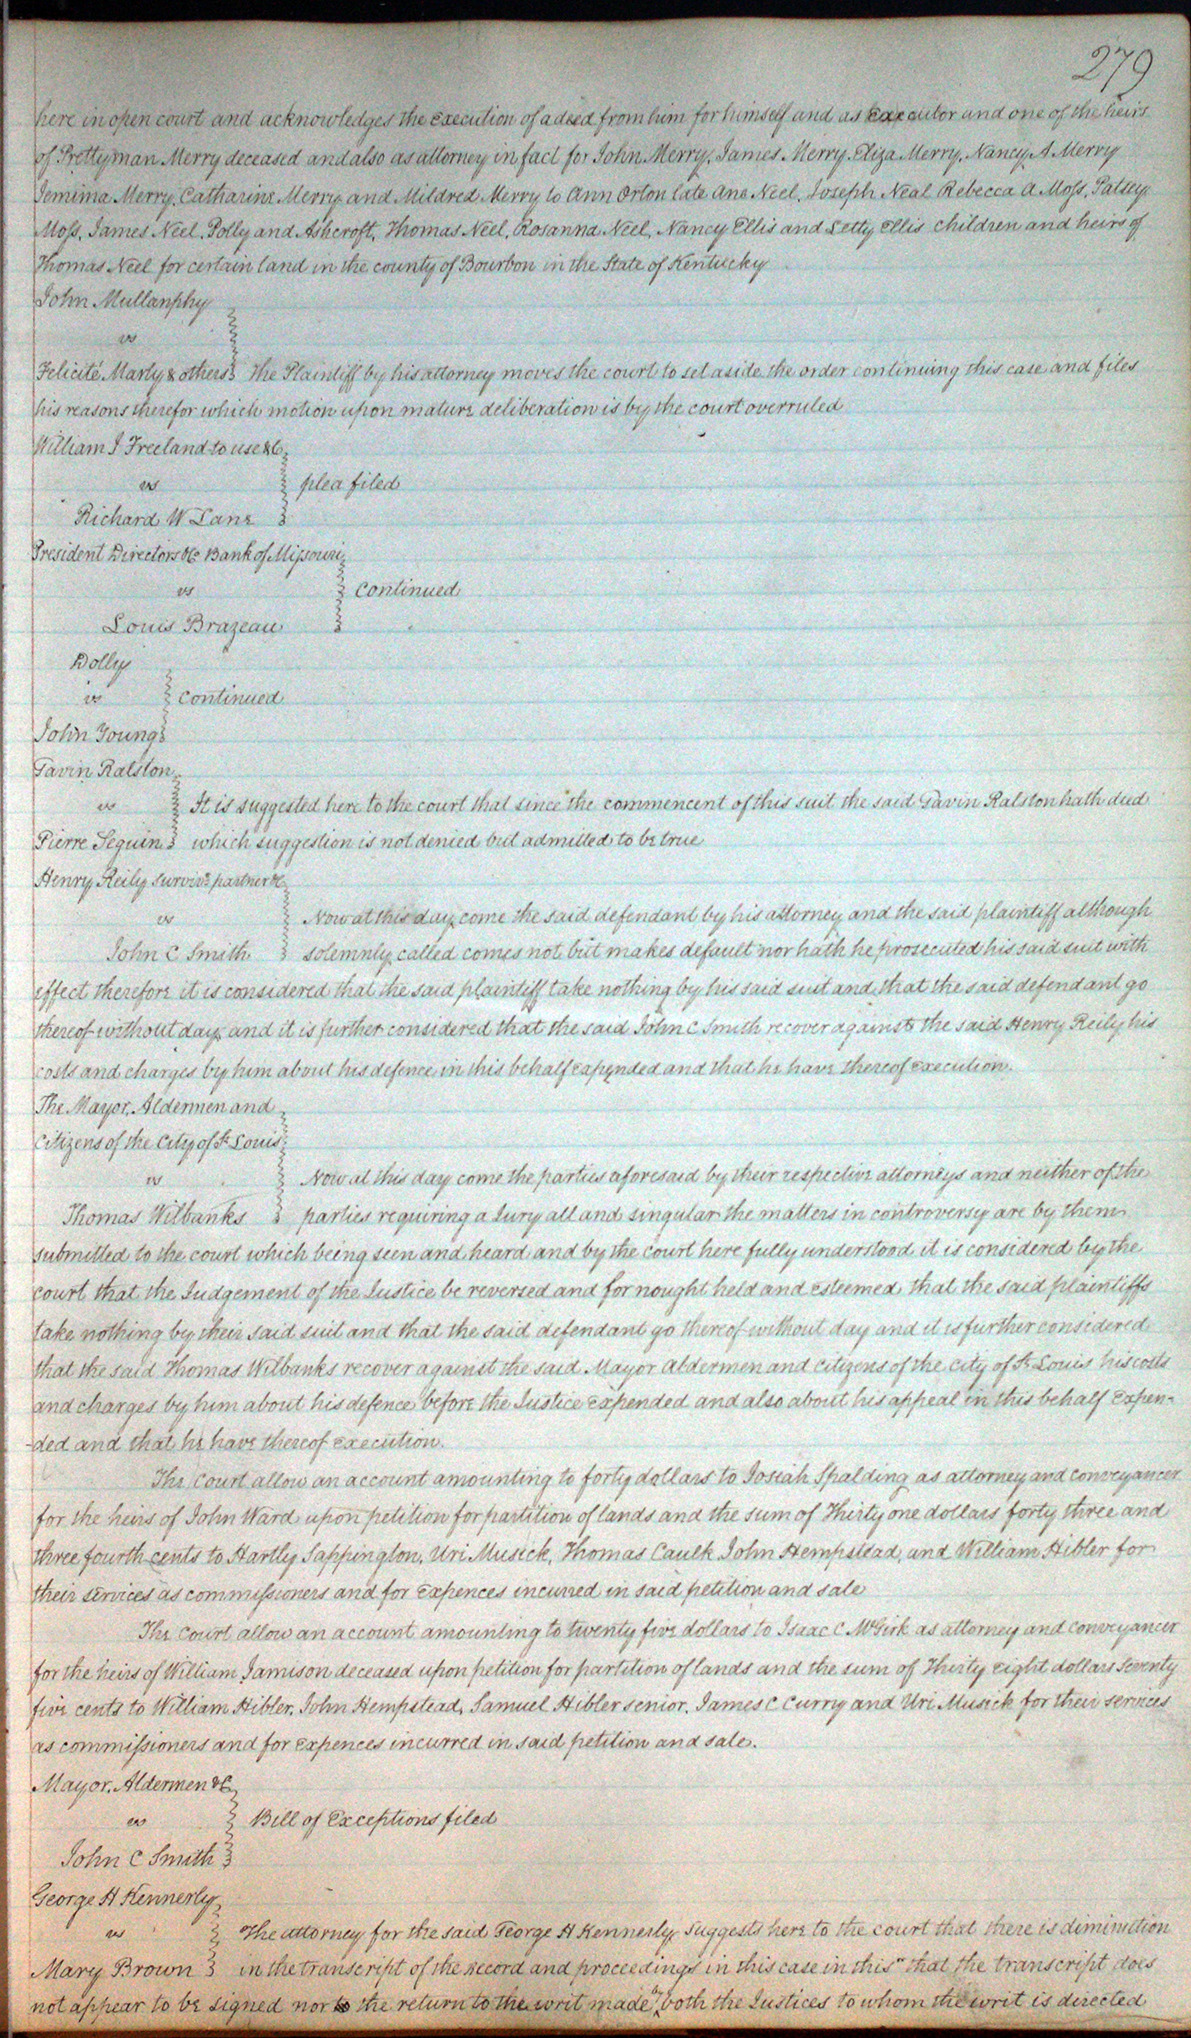 279
here in open court and acknowledges the execution of a deed from him for himself and as Executor and one of the heirs
of Prettyman Merry deceased and also as attorney in fact for John Merry, James Merry Eliza Merry, Nancy A Merry
Jemima Merry, Catharine Merry and Mildred Merry to Ann Orton late Ann Neel, Joseph Neal Rebecca A Moss, Patsey
Moss, James Neel, Polly and Ashcroft, Thomas Neel, Rosanna Neel, Nancy Ellis and Letty Ellis children and heirs of
Thomas Neel for certain land in the county of Bourbon in the State of Kentucky
John Mullanphy
vs
Felicité Marly & others The Plaintiff by his attorney moves the court to set aside the order continuing this case and files
his reasons therefor which motion upon mature deliberation is by the court overruled
William J Freeland to use &c
vs plea filed
Richard W Lane
President Directors &c Bank of Missouri
vs Continued
Louis Brazeau
Dolly
vs Continued
John Young
Gavin Ralston
vs It is suggested here to the court that since the commencent of this suit the said Gavin Ralston hath died
Pierre Seguin which suggestion is not denied but admitted to be true
Henry Reily Surviv'g partner &c
vs Now at this day come the said defendant by his attorney and the said plaintiff although
John C Smith solemnly called comes not but makes default nor hath he prosecuted his said suit with
effect therefore it is considered that the said plaintiff take nothing by his said suit and that the said defendant go
thereof without day and it is further considered that the said John C Smith recover against the said Henry Reily his
costs and charges by him about his defence in this behalf expended and that he have thereof execution.
The Mayor, Aldermen and
Citizens of the City of St Louis
vs Now at this day come the parties aforesaid by their respective attorneys and neither of the
Thomas Wilbanks parties requiring a Jury all and singular the matters in controversy are by them
submitted to the court which being seen and heard and by the court here fully understood it is considered by the
court that the Judgement of the Justice be reversed and for nought held and esteemed that the said plaintiffs
take nothing by their said suit and that the said defendant go thereof without day and it is further considered
that the said Thomas Wilbanks recover against the said Mayor Aldermen and Citizens of the City of St Louis his costs
and charges by him about his defence before the Justice expended and also about his appeal in this behalf expen-
-ded and that he have thereof execution.
The Court allow an account amounting to forty dollars to Josiah Spalding as attorney and conveyancer
for the heirs of John Ward upon petition for partition of lands and the sum of Thirty one dollars forty three and
three fourth cents to Hartly Sappington, Uri Musick, Thomas Caulk John Hempstead, and William Hibler for
their services as commissioners and for expences incurred in said petition and sale
The Court allow an account amounting to twenty five dollars to Isaac C McGirk as attorney and conveyancer
for the heirs of William Jamison deceased upon petition for partition of lands and the sum of Thirty eight dollars Seventy
five cents to William Hibler, John Hempstead, Samuel Hibler senior, James C Curry and Uri Musick for their services
as commissioners and for expences incurred in said petition and sale.
Mayor, Aldermen &c
vs Bill of Exceptions filed
John C Smith
George H Kennerly
vs The attorney for the said George H Kennerly suggests here to the court that there is diminution
Mary Brown in the transcript of the record and proceedings in this case in this " that the transcript does
not appear to be signed nor to the return to the writ made by both the Justices to whom the writ is directed